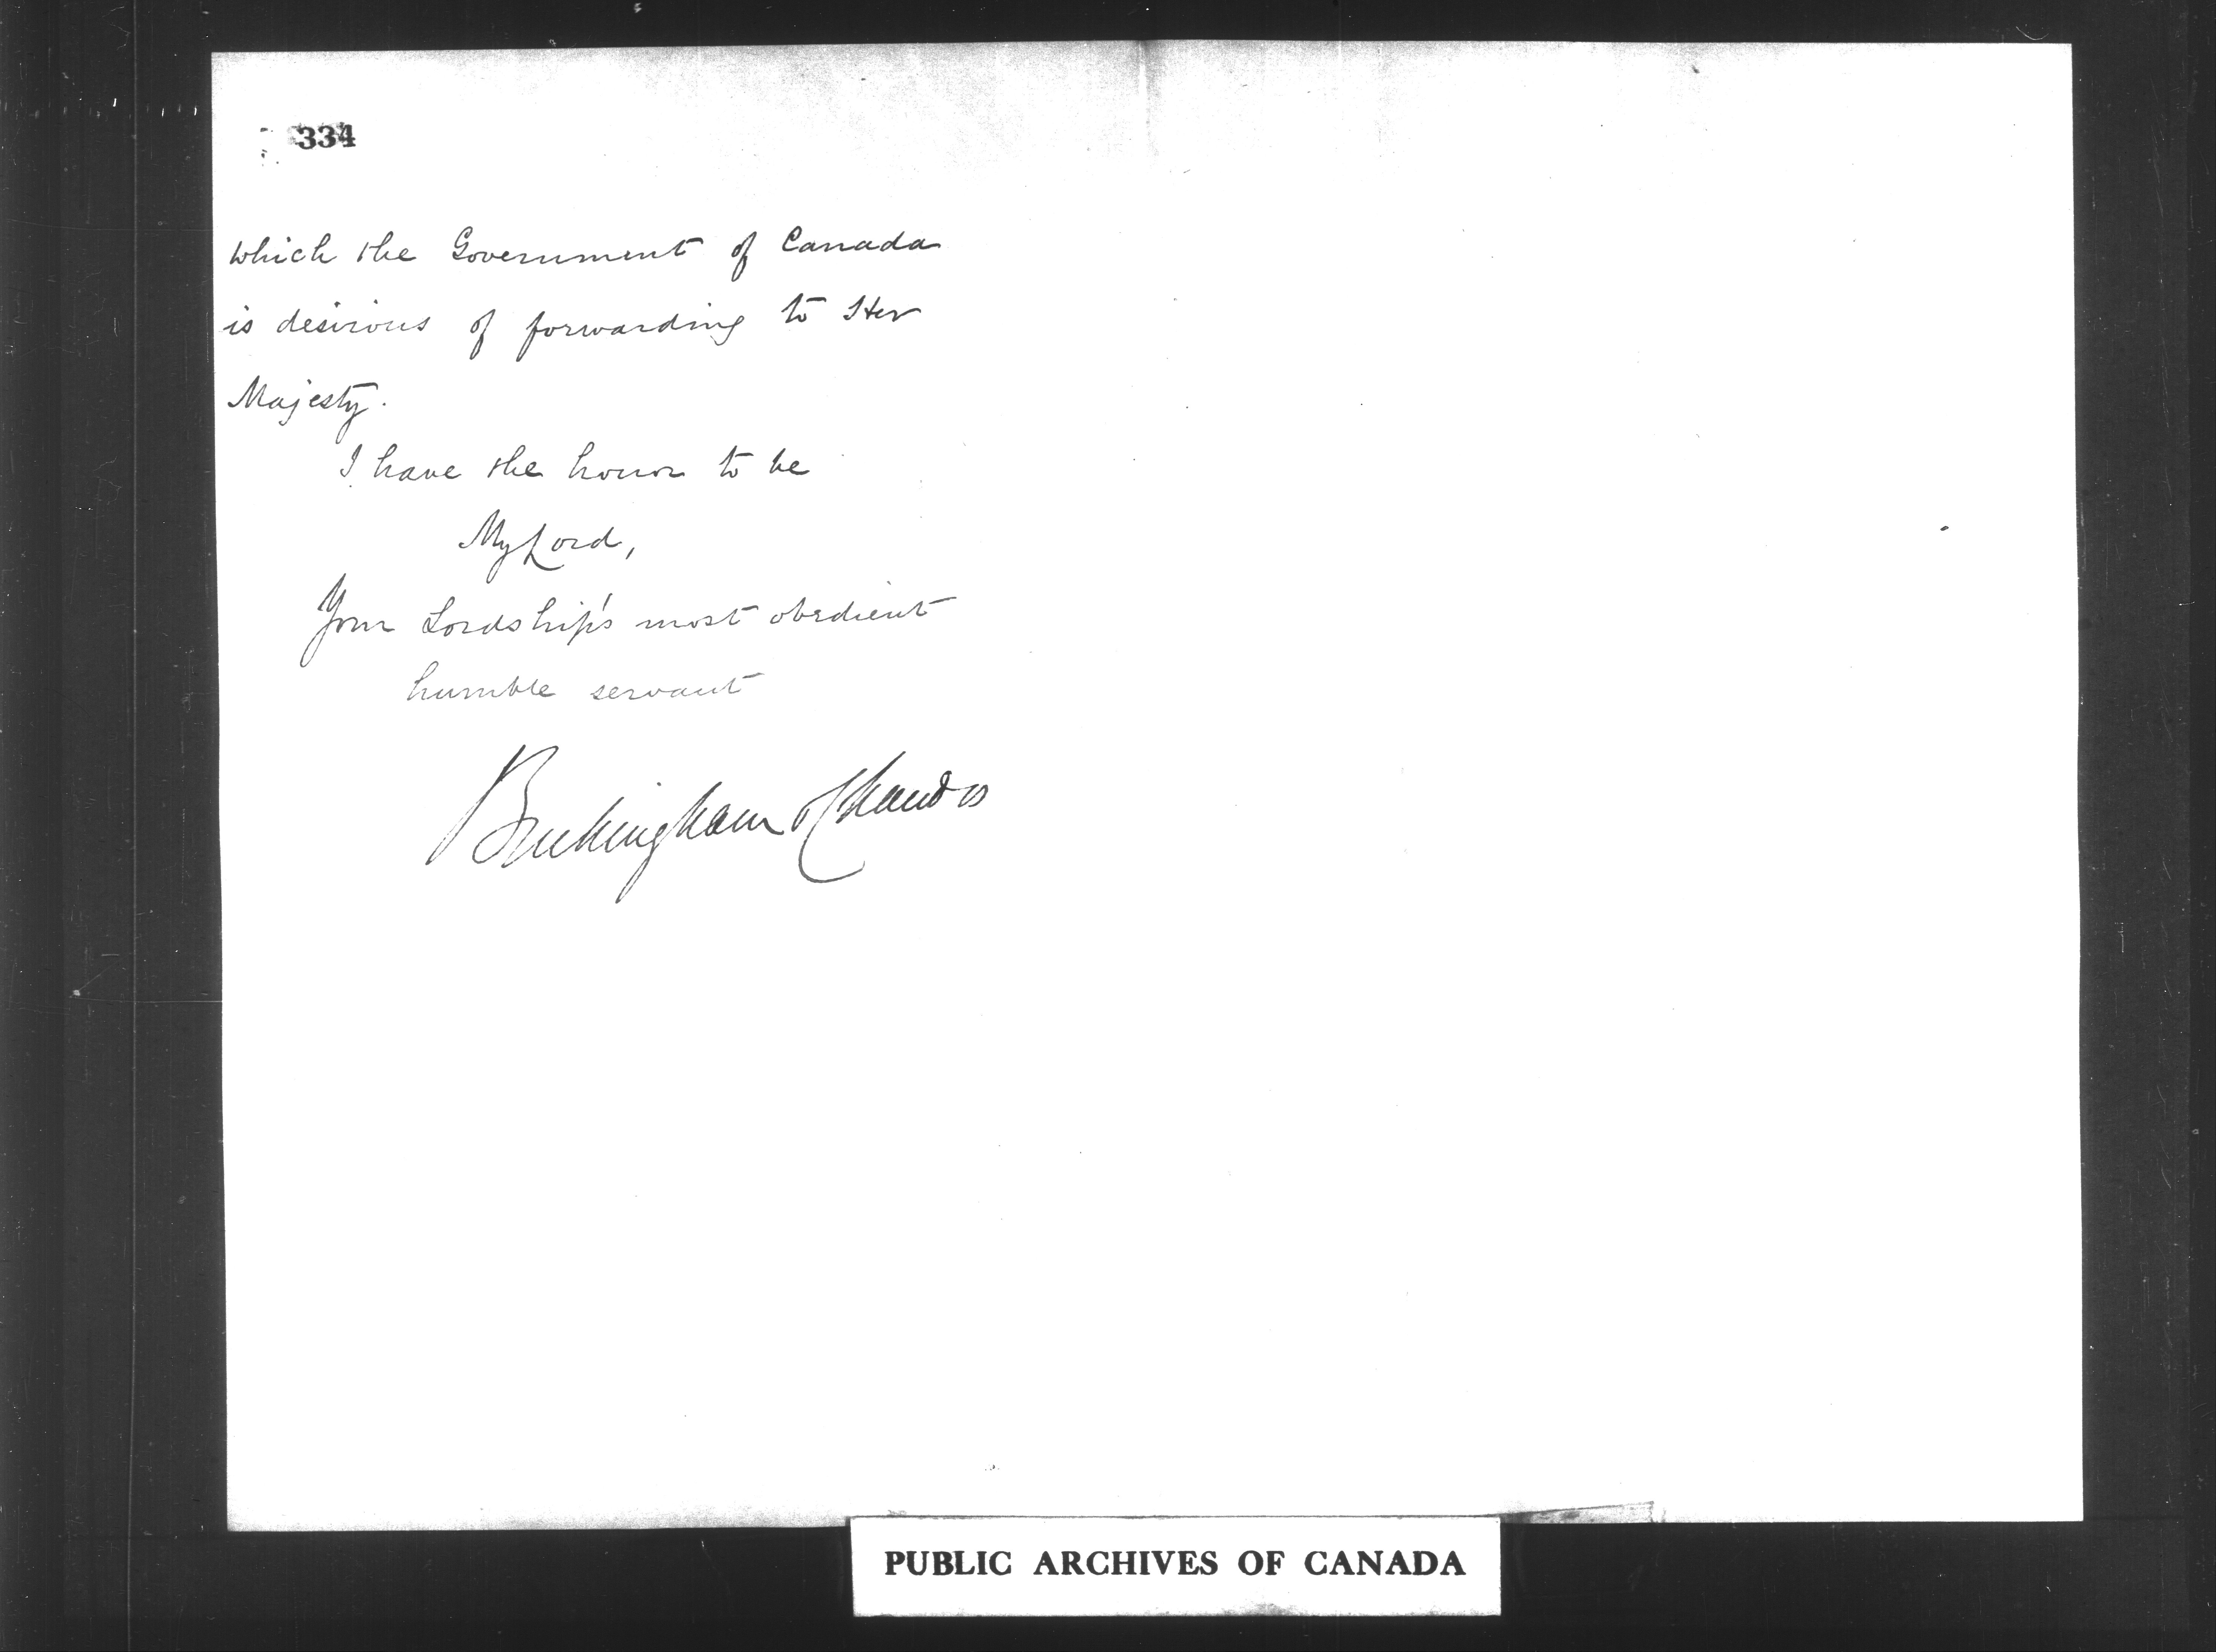 334
which the Government of Canada
is desirous of forwarding to Her
Majesty.
I have the honor to be
My Lord,
Your Lordship's most obedient
humble servant
Buckingham & Chandos
PUBLIC ARCHIVES OF CANADA